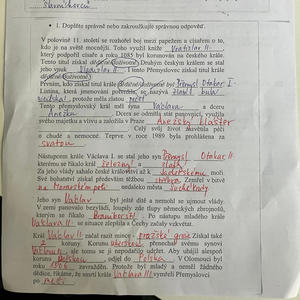 1. Doplňte správně nebo zakroužkujte správnou odpověď.
V polovině 11. století se rozhořel boj mezi papežem a císařem o to,
kdo je na světě mocnější. Toho využil kníže Vratislav II.
který podpořil císaře a roku 1085 byl korunován na českého krále.
Tento titul získal dědičně/doživotně. Druhým českým králem se stal
jeho vnuk Vladislav II. Tento Přemyslovec získal titul krále
dědičně/doživotně.
Prvním, kdo získal titul krále dědičně/doživotně byl Přemysl Otakar I.
Listina, která jmenování potvrdila, se nazývá Zlatá bula
sicilská, protože měla zlatou pečeť
Tento přemyslovský král měl syna Václava a dceru
Anežku. Dcera se odmítla stát panovnicí, využila
svého majetku a vlivu a založila v Praze Anežský klášter
Celý svůj život zasvětila péči
o chudé a nemocné. Teprve v roce 1989 byla prohlášena za
svatou
Nástupcem krále Václava I. se stal jeho syn Přemysl Otakar II.
kterému se říkalo král železný a zlatý
Za jeho vlády sahalo české království až k Jaderskému moři.
Své bohatství získal především těžbou stříbra. Zemřel v bitvě
na Moravském poli nedaleko města Suché Kruty
Jeho syn Václav byl ještě dítě a nemohl se ujmout vlády.
V zemi panovalo bezvládí, loupily zde tlupy německých zbrojnošů,
kterým se říkalo Braniboři. Po nástupu mladého krále
Václava II. se situace zlepšila a Čechy začaly vzkvétat.
Král Václav II. začal razit mince - pražské groše. Získal také
korunu. Korunu uherskou přenechal svému synovi
Václavu, ale tomu se ji nepodařilo udržet. Aby uhájil alespoň
korunu polskou odjel do Polska. V Olomouci byl
roku 1306 zavražděn. Protože byl mladý a neměl žádného
dědice, říkáme, že smrtí krále Václava III. vymřeli Přemyslovci
po meči